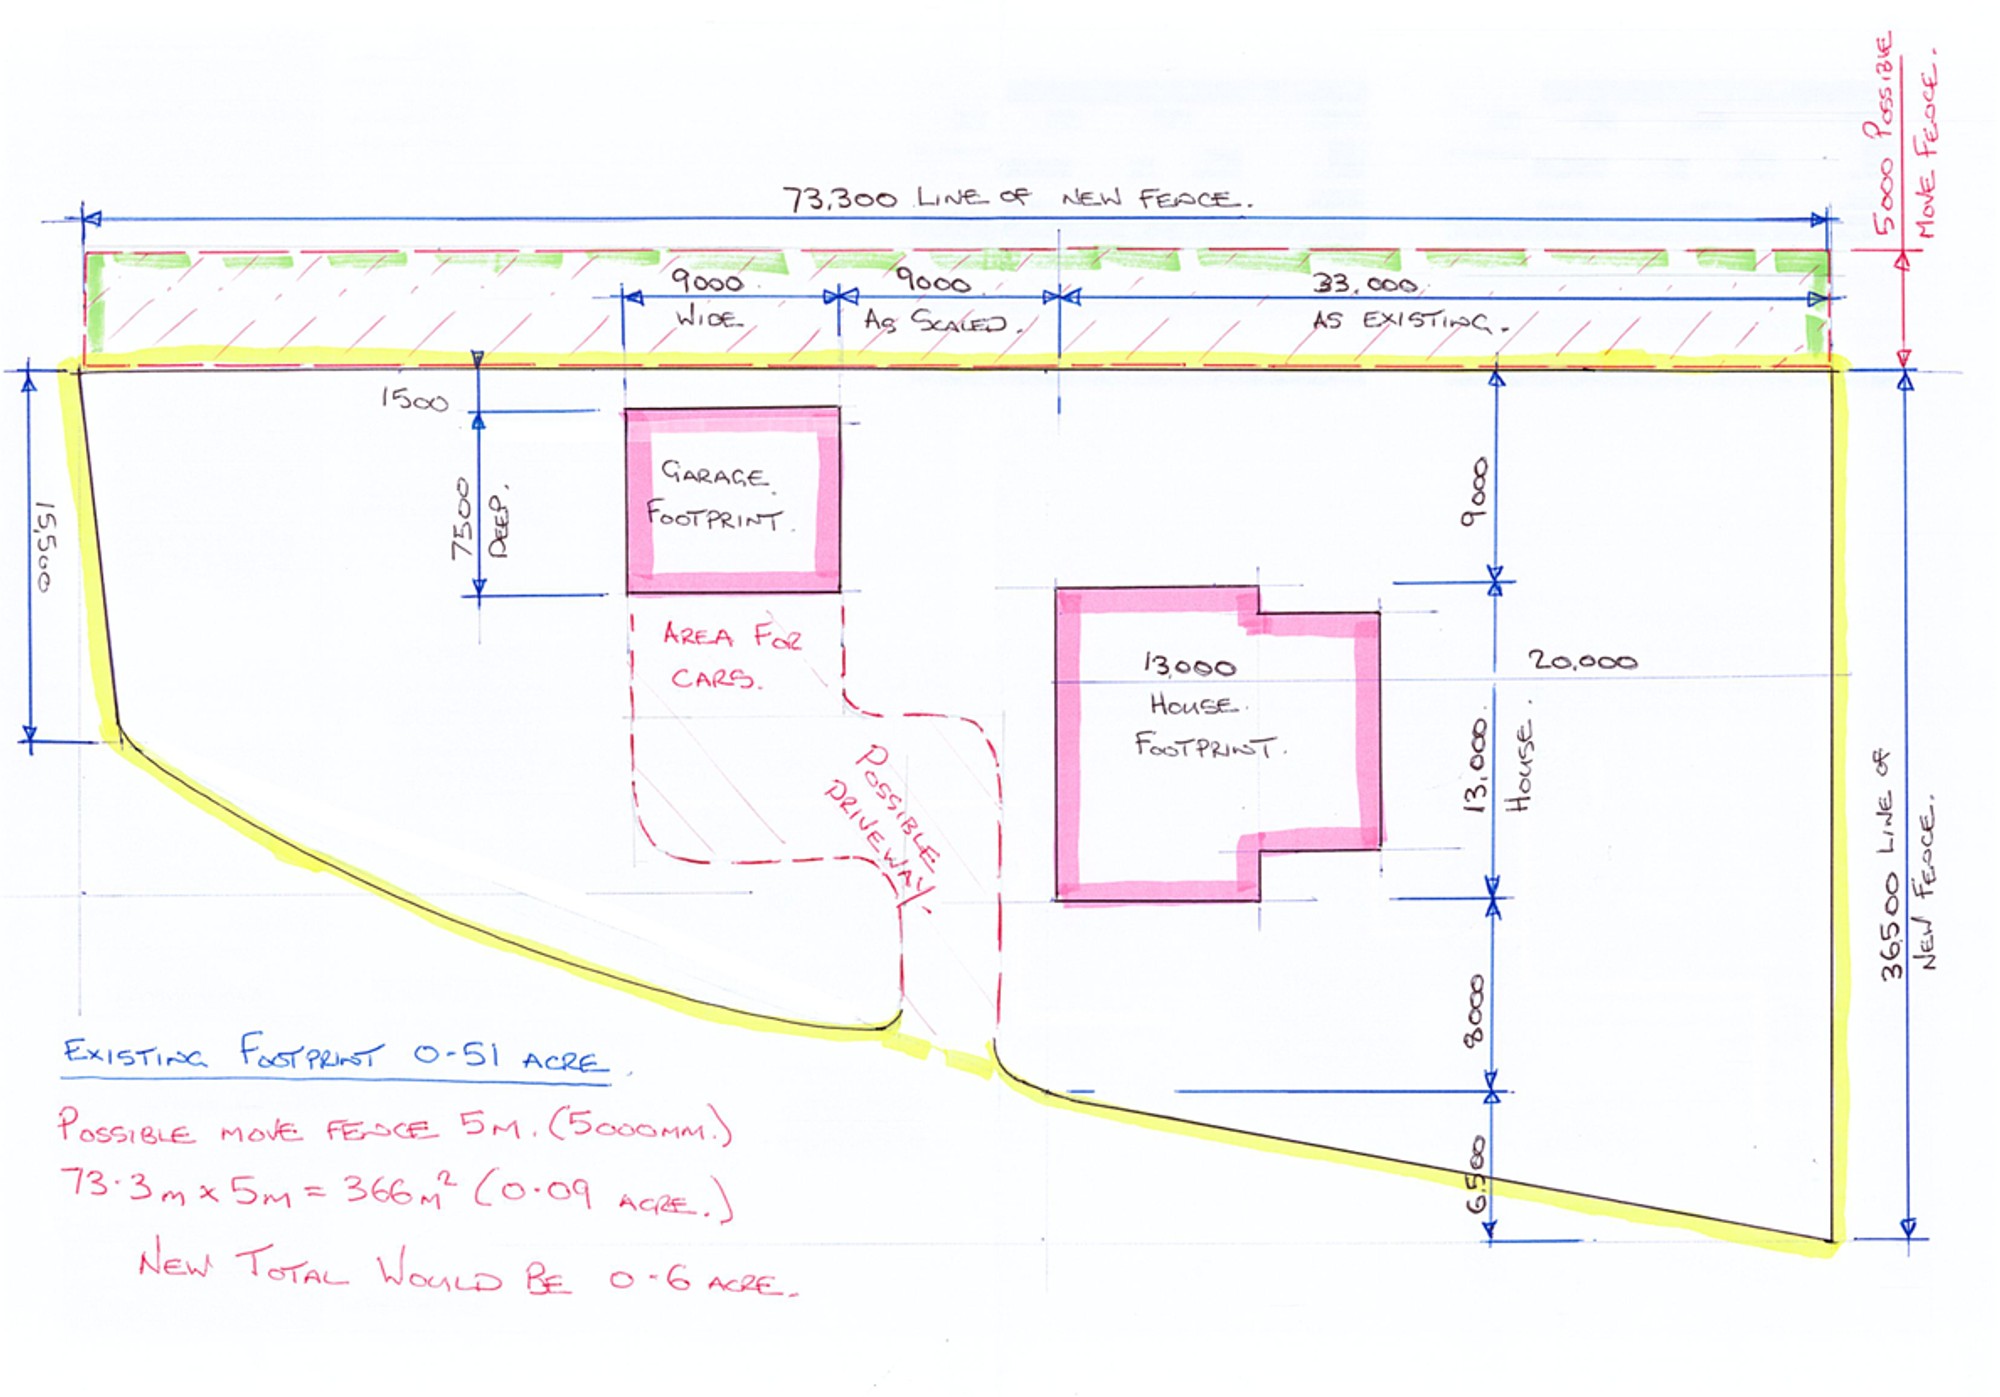 5000 POSSIBLE
MOVE FENCE.
73,300 LINE OF NEW FENCE.
9000
WIDE
9000
AS SCALED.
33,000
AS EXISTING.
1500
15,500
7500
DEEP.
GARAGE
FOOTPRINT.
9000
AREA FOR
CARS.
13,000
HOUSE
FOOTPRINT.
20,000
13,000
HOUSE.
POSSIBLE
DRIVEWAY.
36,500 LINE OF
NEW FENCE.
8000
6,500
EXISTING FOOTPRINT 0.51 ACRE.
POSSIBLE MOVE FENCE 5M. (5000MM.)
73.3M x 5M = 366M² (0.09 ACRE.)
NEW TOTAL WOULD BE 0.6 ACRE.